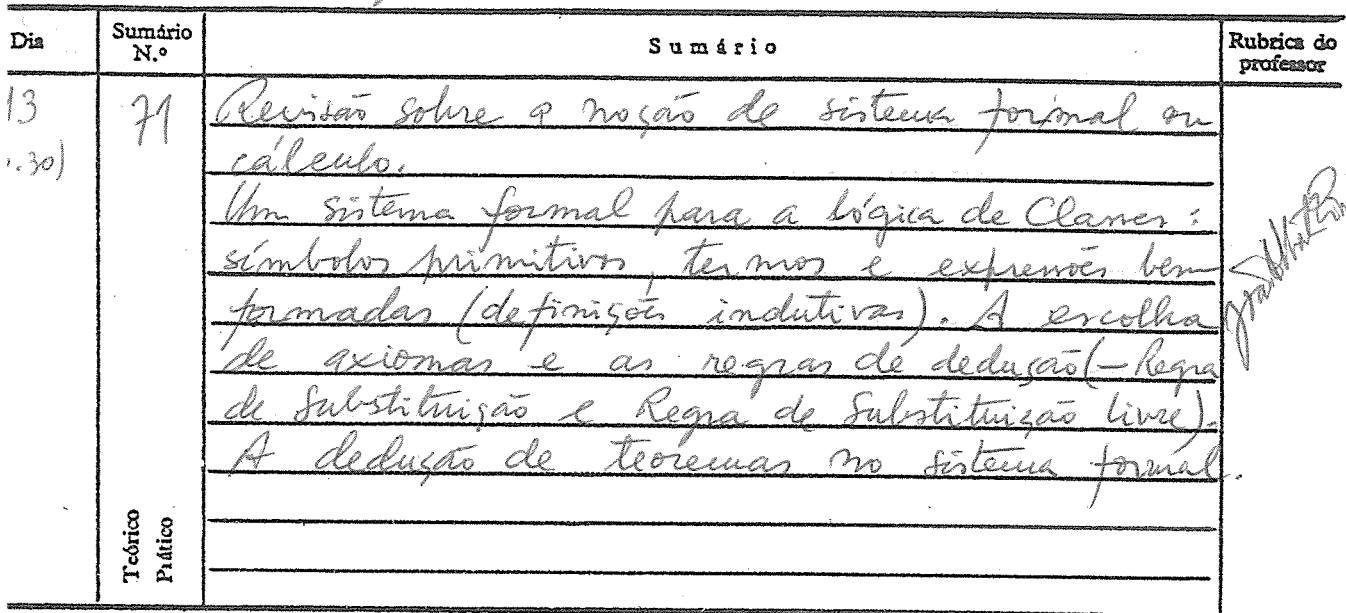 Dia
Sumário
N.º
Sumário
Rubrica do
professor
13
71
Revisão sobre a noção de sistema formal ou
cálculo.
Um sistema formal para a lógica de Classes:
símbolos primitivos, termos e expressões bem
formadas (definições indutivas). A escolha
de axiomas e as regras de dedução (- Regra
de Substituição e Regra de Substituição livre).
A dedução de teoremas no sistema formal.
.30)
Teórico
Prático